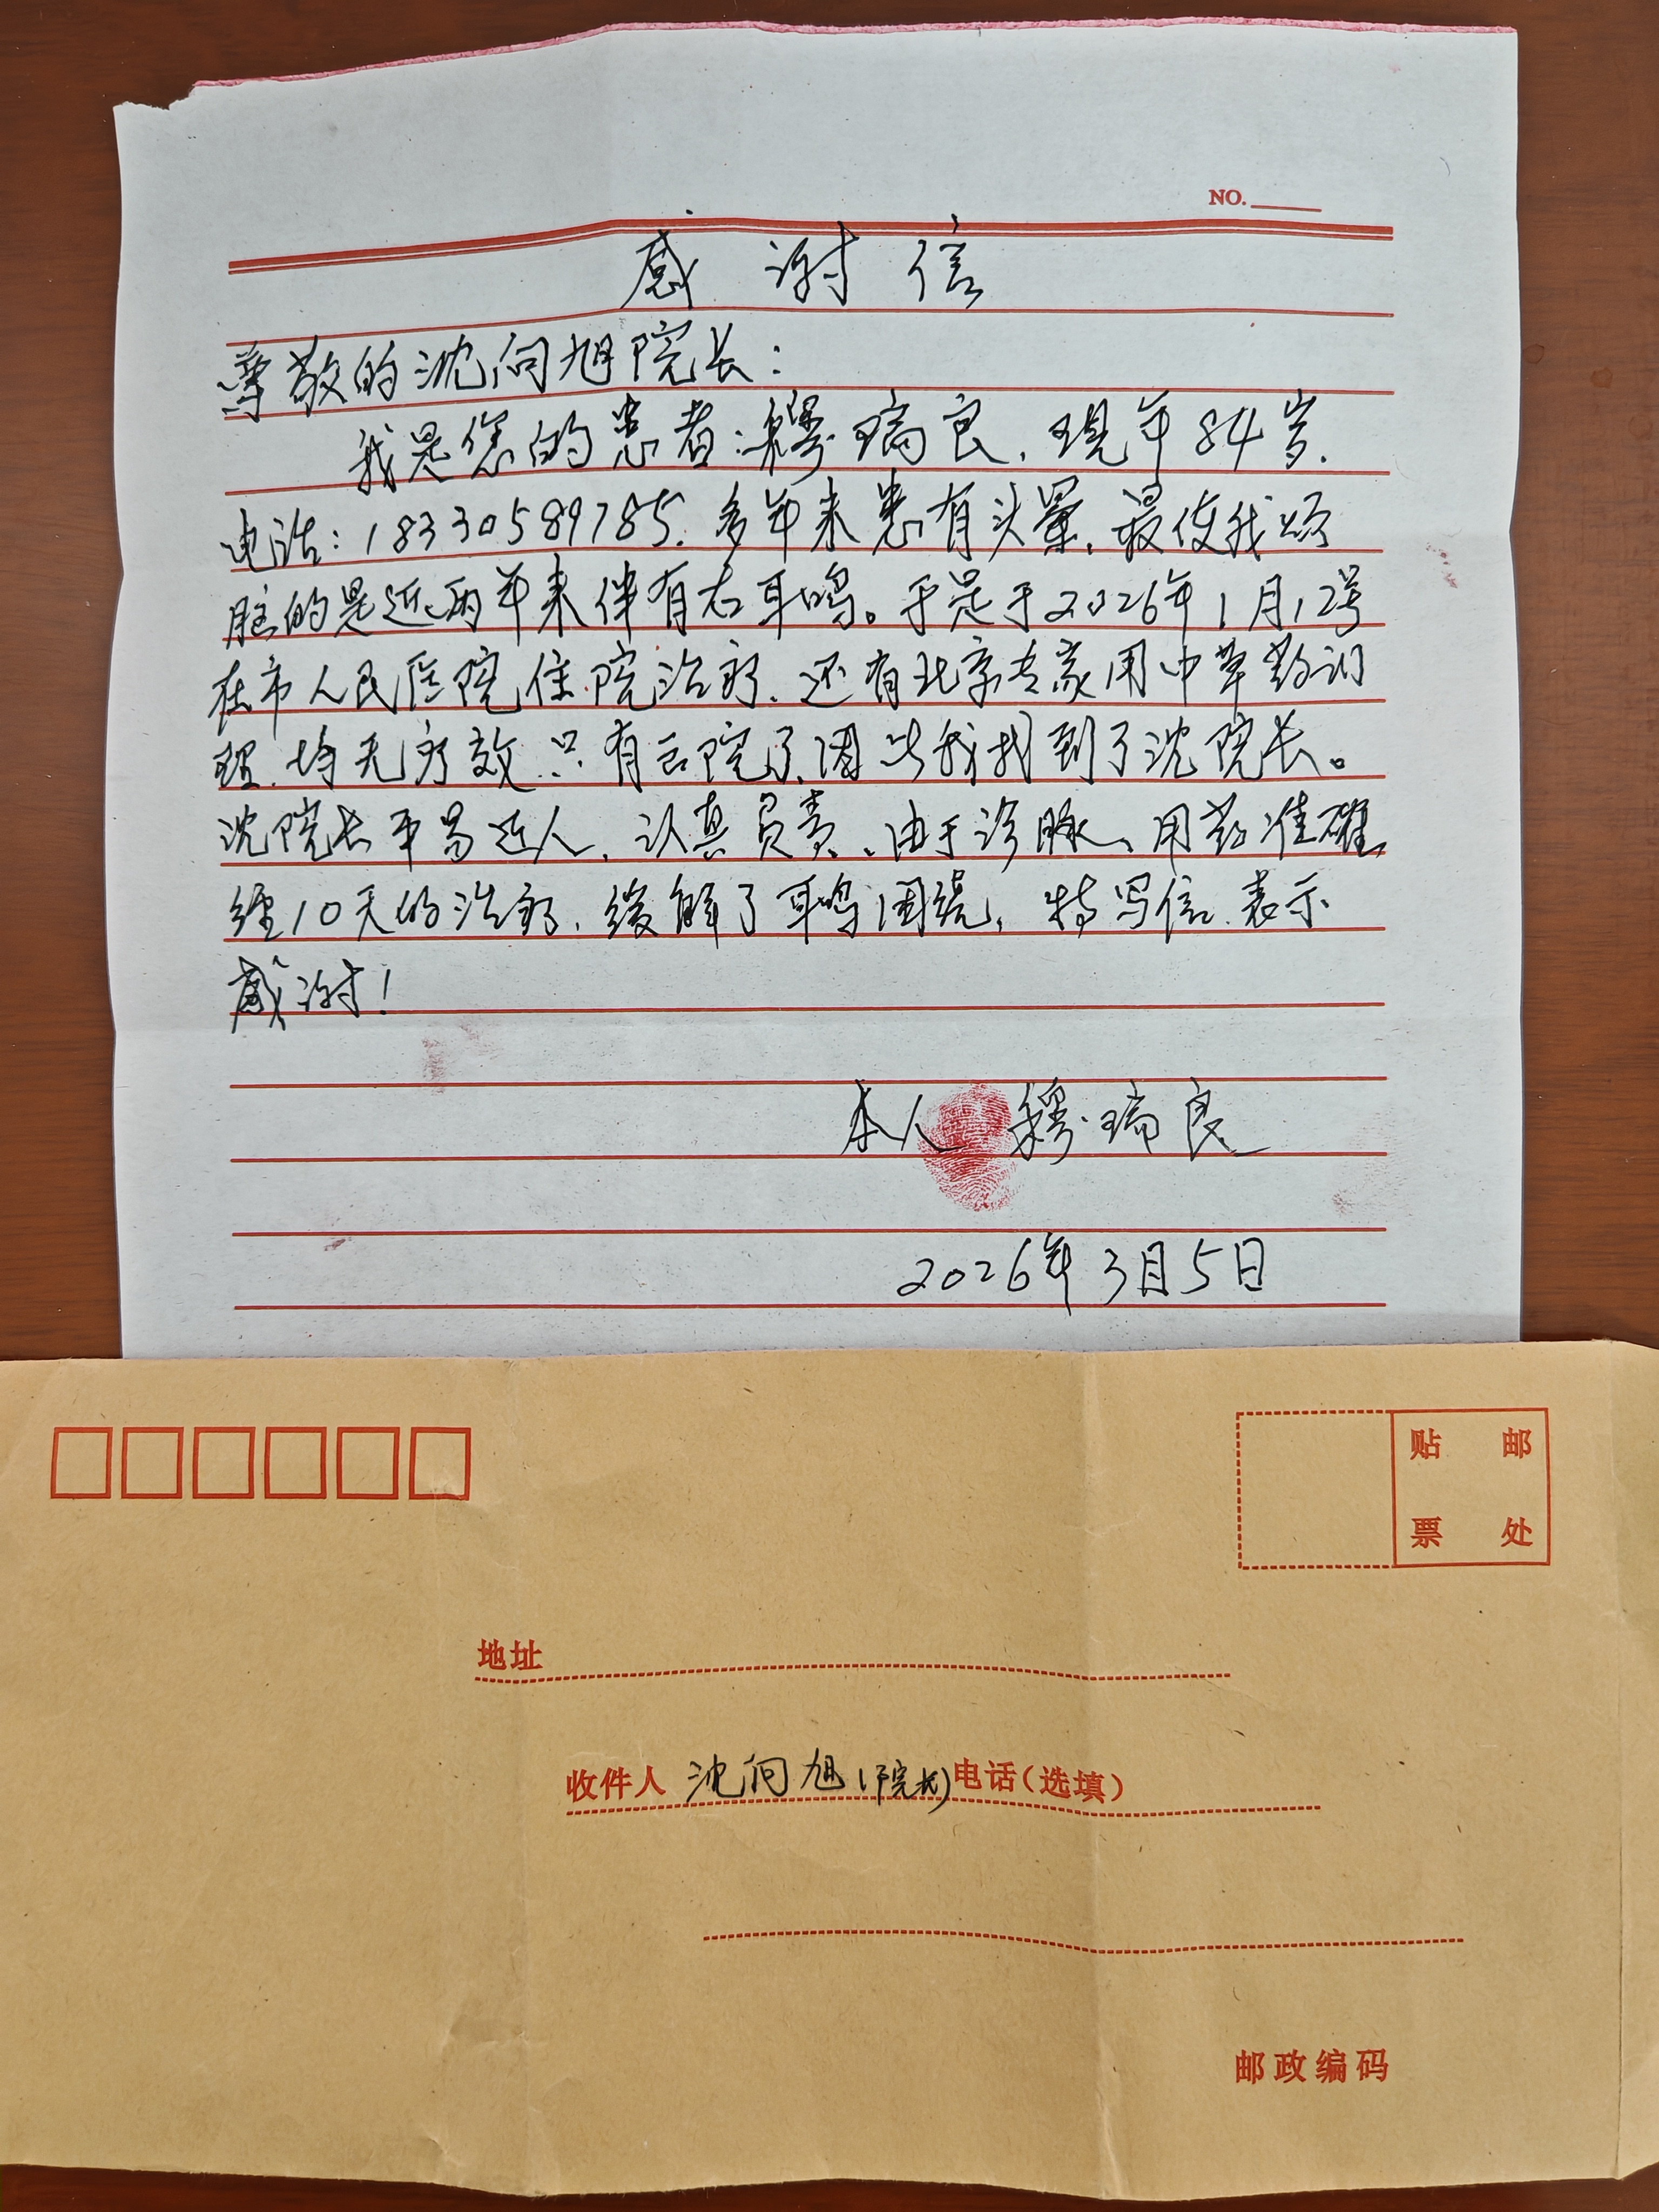 NO.
感谢信
尊敬的沈向旭院长：
我是您的患者：穆瑞良，现年84岁，
电话：18330589785. 多年来患有头晕，最使我烦
脑的是近两年来伴有右耳鸣。于是于2026年1月12号
在市人民医院住院治疗，还有北京专家用中草药调
理，均无疗效，只有出院了，因此我找到了沈院长。
沈院长平易近人，认真负责，由于诊脉、用药准确，
经10天的治疗，缓解了耳鸣困绕，特写信，表示
感谢！
本人 穆瑞良
2026年3月5日
贴 邮
票 处
地址
收件人 沈向旭（院长）电话（选填）
邮政编码